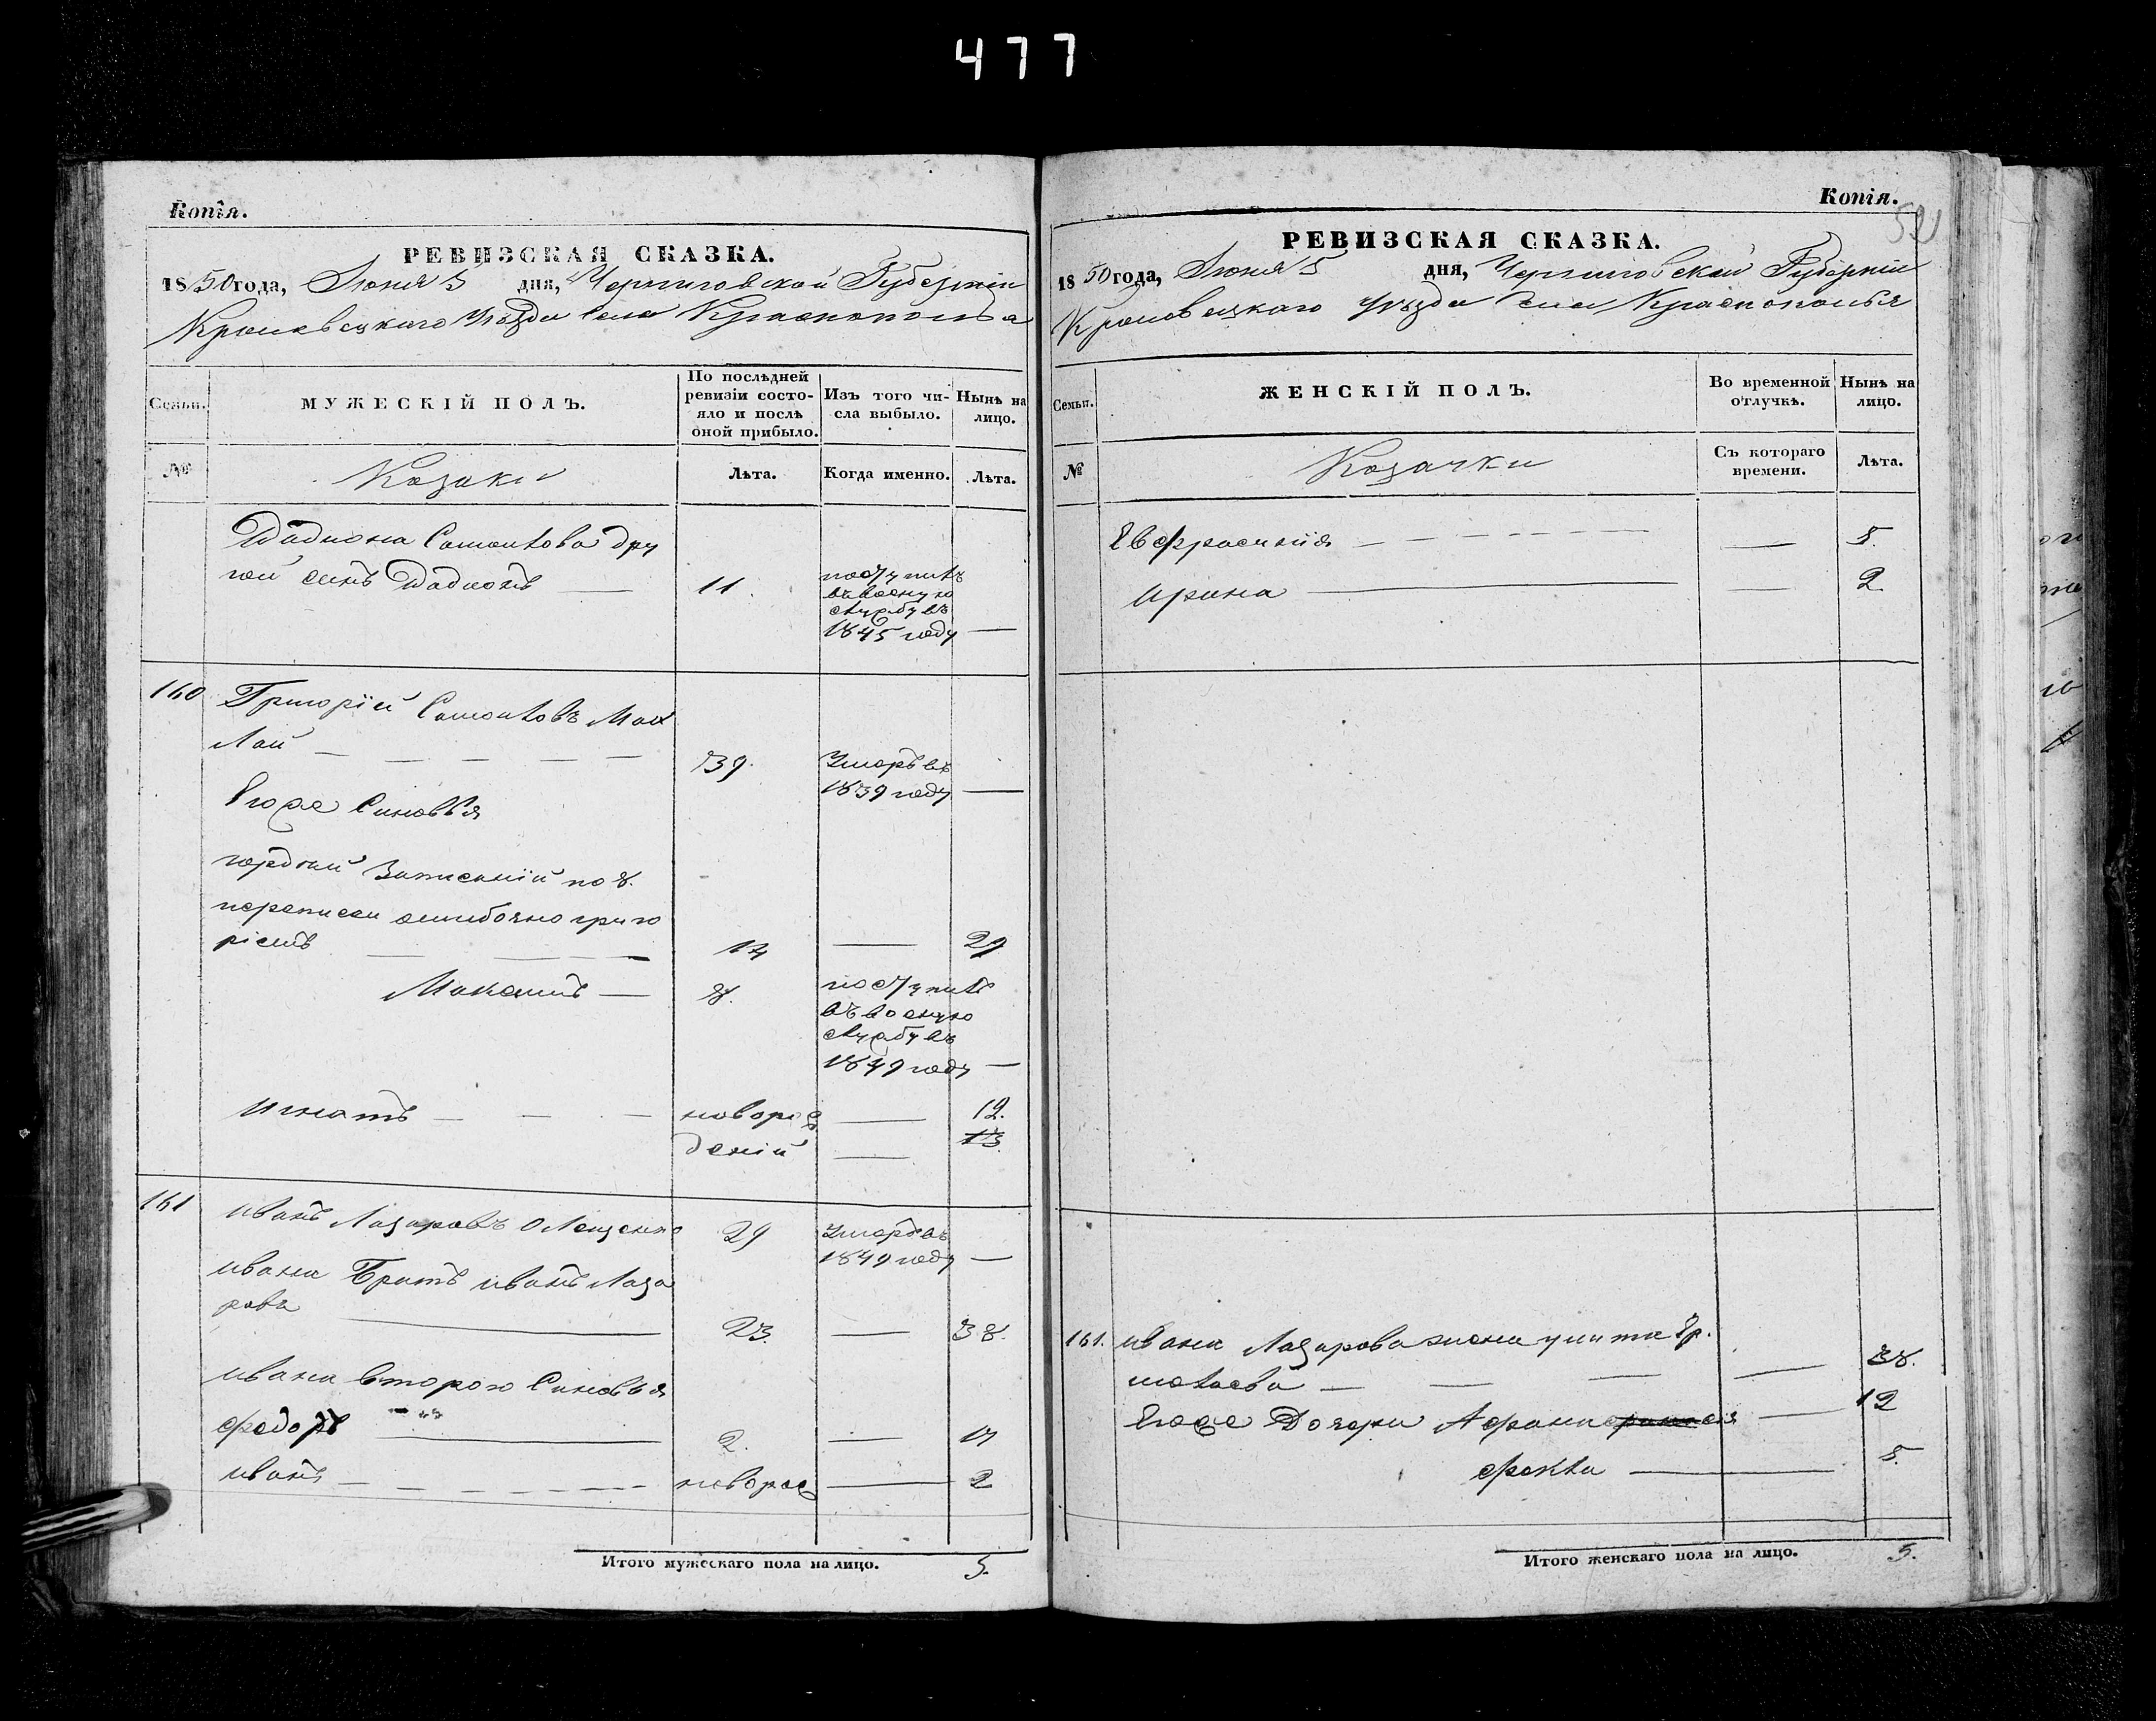 477
Копія.
РЕВИЗСКАЯ СКАЗКА.
1850 года, Июня 5 дня, Черниговской Губерніи
Кролевецкаго Уѣзда села Краснополья
Семьи.
МУЖЕСКІЙ ПОЛЪ.
По послѣдней ревизіи состояло и послѣ оной прибыло.
Изъ того числа выбыло.
Нынѣ на лицо.
№
Козаки
Лѣта.
Когда именно.
Лѣта.
Самойлова дру
гой синъ 11. поступилъ
въ воену ю
службу въ
1845 году —
160 Григорій Самойловъ
39. Умеръ въ
1839 году —
Его же Синовья
гордѣй Записаній по 8.
переписи ошибочно григо
ріемъ — 14 — 29
Максимъ — 8. поступилъ
въ воєную
службу въ
1849 году —
игнатъ — новорож
деній — 12.
13
161 иванъ Лазаровъ Олещенко 29 Умеръ въ
1849 году —
ивана Братъ иванъ Лаза
ровъ — 23. — 38.
ивана второго Синовья
федоръ — 2. — 17
иванъ — новорож — 2
Итого мужескаго пола на лицо. 5.
Копія.
РЕВИЗСКАЯ СКАЗКА.
1850 года, Июня 5 дня, Черниговской Губерніи
Кролевецкаго Уѣзда села Краснополья
Семьи.
ЖЕНСКІЙ ПОЛЪ.
Во временной отлучкѣ.
Нынѣ на лицо.
№
Козачки
Съ котораго времени.
Лѣта.
Евфросинія — — 5.
ирина — — 2.
161. ивана Лазарова жена улита Ер.
молаева — — 38.
Его же Дочери — 12
фекла — 5.
Итого женскаго пола на лицо. 5.